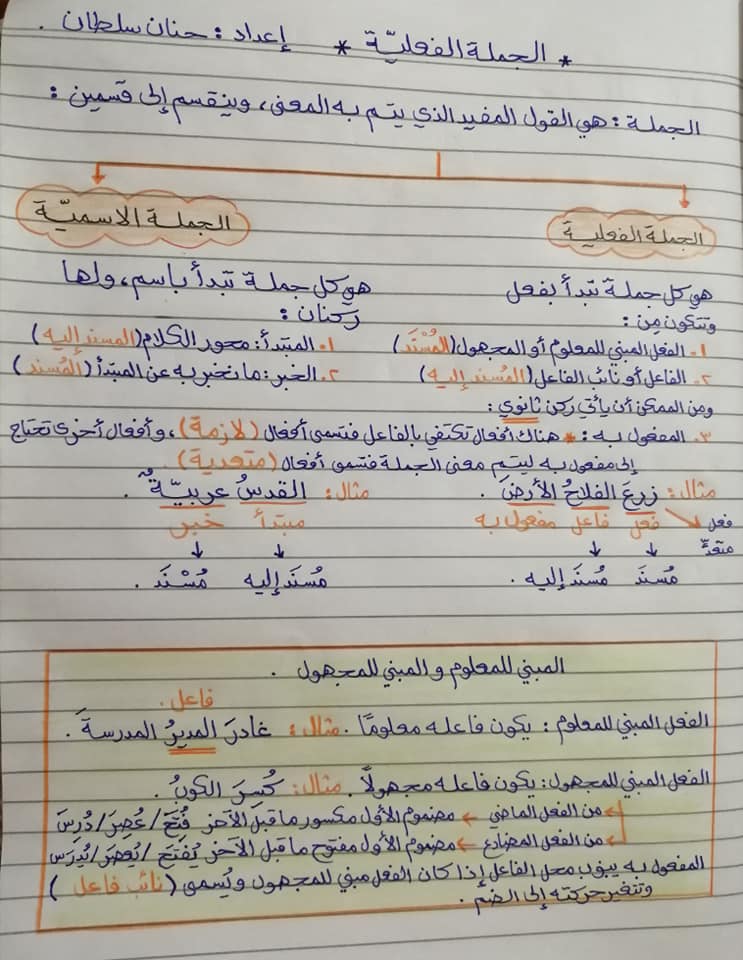 * الجملة الفعليّة * إعداد : حنان سلطان .
الجملة : هو القول المفيد الذي يتم به المعنى ، وينقسم إلى قسمين :
الجملة الفعلية
هو كل جملة تبدأ بفعل
وتتكون مِن :
١. الفعل المبني للمعلوم أو المجهول (المُسْنَد)
٢. الفاعل أو نائب الفاعل (المُسند إليه)
ومن الممكن أن يأتي ركن ثانوي :
الجملة الاسميّة
هو كل جملة تبدأ باسم ، ولها
ركنان :
١. المبتدأ : محور الكلام (المسند إليه)
٢. الخبر : ما نخبر به عن المبتدأ (المُسند)
٣. المفعول به : * هناك أفعال تكتفي بالفاعل فتسمى أفعال (لازمة) ، وأفعال أخرى تحتاج
إلى مفعول به ليتم معنى الجملة فتسمى أفعال (متعدية)
مثال : زرعَ الفلاحُ الأرضَ .
فعل متعدٍّ
فعل فاعل مفعول به
مُسنَد مُسنَد إليه .
مثال : القدسُ عربيّةٌ .
مبتدأ خبر
مُسنَد إليه مُسْنَد .
المبني للمعلوم و المبني للمجهول .
فاعل .
الفعل المبني للمعلوم : يكون فاعله معلومًا . مثال : غادرَ المديرُ المدرسةَ .
الفعل المبني للمجهول : يكون فاعله مجهولًا . مثال : كُسِرَ الكوبُ .
من الفعل الماضي ← مضموم الأول مكسور ما قبل الآخر فُتِحَ / عُصِرَ / دُرِسَ
من الفعل المضارع ← مضموم الأول مفتوح ما قبل الآخر يُفتَح / يُعصَر / يُدرَس
المفعول به ينوب محل الفاعل إذا كان الفعل مبني للمجهول ويُسمى (نائب فاعل)
وتتغير حركته إلى الضم .